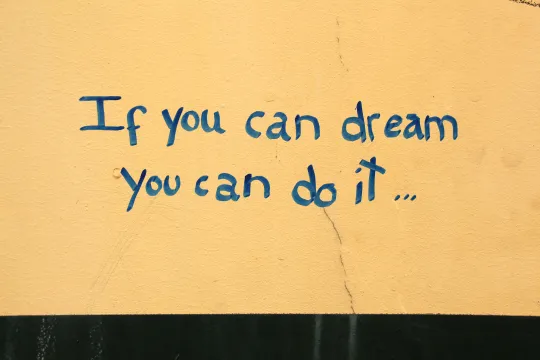 If you can dream
you can do it...